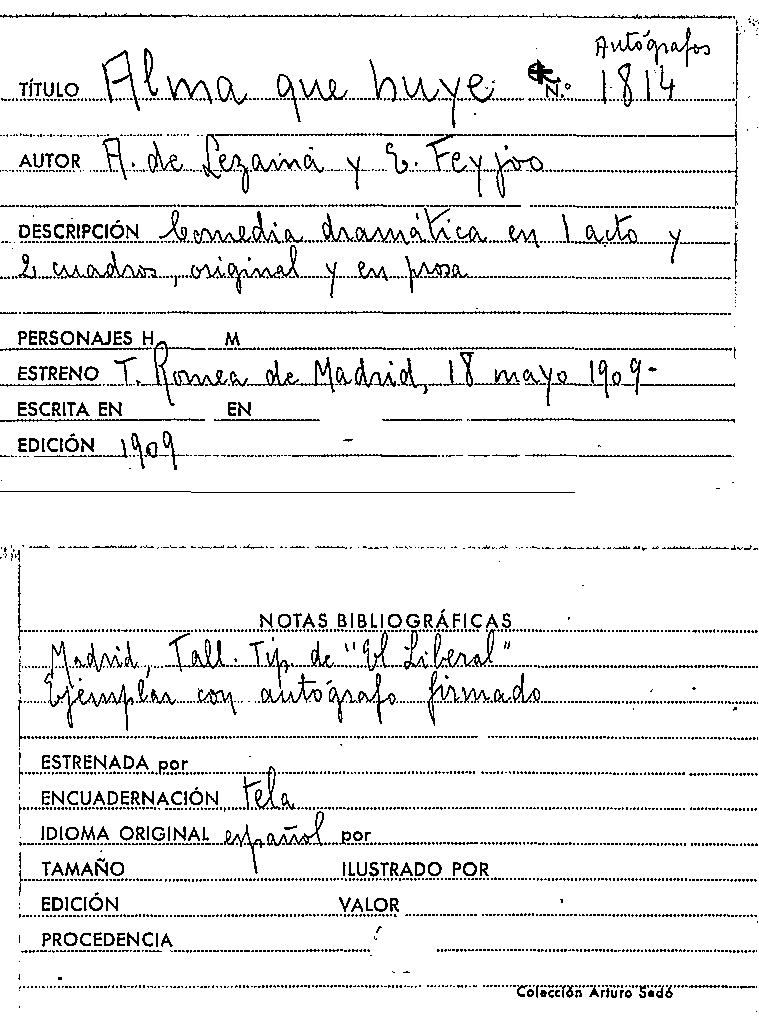 Autógrafos
TÍTULO Alma que huye N.º 1814
AUTOR A. de Lezama y E. Feyjoo
DESCRIPCIÓN Comedia dramática en 1 acto y
2 cuadros, original y en prosa
PERSONAJES H M
ESTRENO T. Romea de Madrid, 18 mayo 1909-
ESCRITA EN EN
EDICIÓN 1909 -
NOTAS BIBLIOGRÁFICAS
Madrid, Tall. Tip. de "El Liberal"
Ejemplar con autógrafo firmado
ESTRENADA por
ENCUADERNACIÓN tela
IDIOMA ORIGINAL español por
TAMAÑO ILUSTRADO POR
EDICIÓN VALOR
PROCEDENCIA
Colección Arturo Sedó